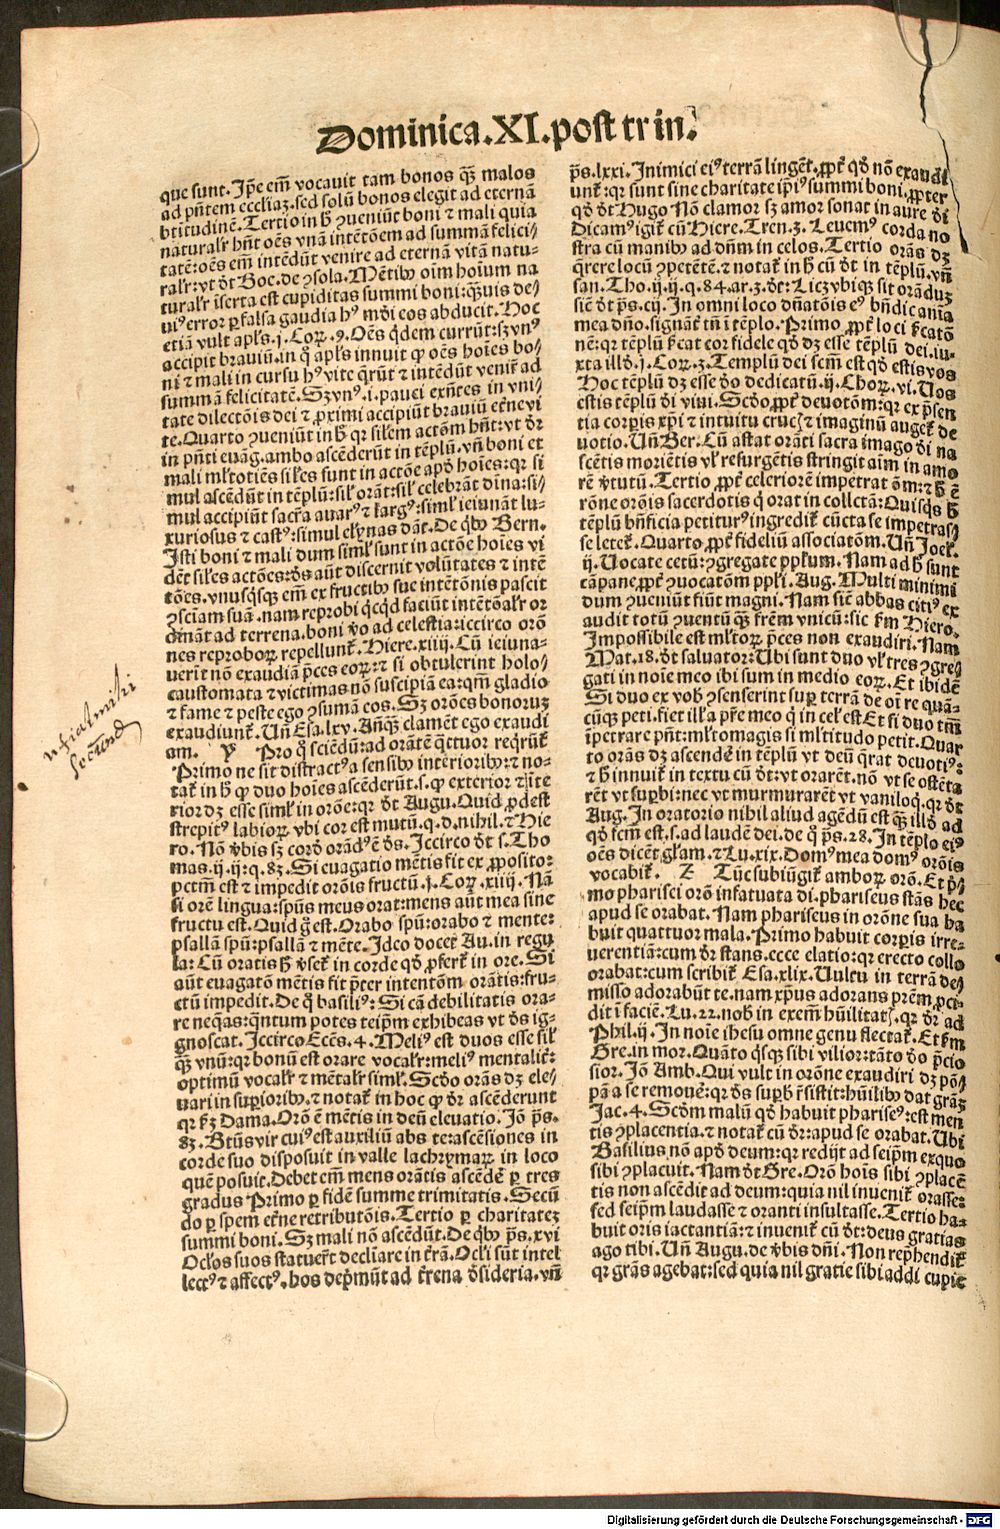 Dominica.XI.post trin.
que sunt. Ip̄e em̄ vocauit tam bonos qͣꝫ malos
ad pn̄tem eccliaꝫ. sed solū bonos elegit ad eternā
btitudinē. Tertio in hͦ ꝯueniūt boni ⁊ mali quia
naturalr̄ hn̄t oēs vnā intētōem ad summā felici⸗
tatē: oēs em̄ intēdūt venire ad eternā vitā natu⸗
ralr̄: vt dt̄ Boe. de ꝯsola. Mētibꝰ oim hoīum na
turalr̄ īserta est cupiditas summi boni: qͣꝫuis de⸗
uiꝰ error ꝑ falsa gaudia hꝰ mūdi eos abducit. Hoc
etiā vult apl̄s. j. Coꝝ. 9. Oēs qͥdem currūt: sꝫ vnꝰ
accipit brauiū. in qͦ apl̄s innuit ꝙ oēs hoīes bo⸗
ni ⁊ mali in cursu hꝰ vite q̄rūt ⁊ intēdūt venire ad
summā felicitatē. Sꝫ vnꝰ. i. pauci exn̄tes in vni⸗
tate dilectōis dei ⁊ ꝓximi accipiūt brauiū et̄ne vi
te. Quarto ꝯueniūt in hͦ qꝛ sil̄em actōm hn̄t: vt dr̄
in pn̄ti euāg. ambo ascēderūt in tēplū. vn̄ boni et
mali ml̄totiēs sil̄es sunt in actōe apd̓ hoīes: qꝛ si
mul ascēdūt in tēplū: sil̄ orāt: sil̄ celebrāt dīna: si⸗
mul accipiūt sacra auarꝰ ⁊ largꝰ: siml̄ ieiunāt lu⸗
xuriosus ⁊ castꝰ: simul elꝫynas dāt. De qͥbꝰ Bern.
Isti boni ⁊ mali dum siml̄ sunt in actōe hoīes vi
dēt sil̄es actōes: ds̄ aūt discernit volūtates ⁊ intē
tōes. vnusqͥsqꝫ em̄ ex fructibꝰ sue intētōnis pascit
ꝯsciam suā. nam reprobi qͥcqͥd faciūt intētōalr̄ or
dinant ad terrena. boni ꝟo ad celestia: iccirco orō
nes reproboꝝ repellunt̄. Hiere. xiiij. Cū ieiuna⸗
uerīt non exaudiā p̄ces eoꝝ: ⁊ si obtulerint holo⸗
caustomata ⁊ victimas nō suscipiā ea: qm̄ gladio
⁊ fame ⁊ peste ego ꝯsumā eos. Sꝫ orōes bonoruꝫ
exaudiunt̄. Un̄ Esa. lxv. Anqͣꝫ clamēt ego exaudi
am. Y Pro qͦ sciēdū: ad orātē qͣttuor reqͥrūt̄
Primo ne sit distractꝰ a sensibꝰ interioribꝰ: ⁊ no⸗
tat̄ in hͦ ꝙ duo hoīes ascēderūt. s. ꝙ exterior ⁊ īte
rior dꝫ esse siml̄ in orōe: qꝛ dt̄ Augu. Quid ꝓdest
strepitꝰ labioꝝ vbi cor est mutū. q. d. nihil. ⁊ Hie
ro. Nō ꝟbis sꝫ corde orādꝰ ē ds̄. Iccirco dt̄ s. Tho
mas. ij. ij: q. 83. Si euagatio mētis fit ex ꝓposito:
pctm̄ est ⁊ impedit orōis fructū. j. Coꝝ. xiiij. Nā
si orē lingua: spūs meus orat: mens aūt mea sine
fructu est. Quid gͦ est. Orabo spū: orabo ⁊ mente:
psallā spū: psallā ⁊ mēte. Ideo docet Au. in regu
la: Cū oratis hͦ ꝟset̄ in corde qd̓ ꝓfert̄ in ore. Si
aūt euagatō mētis fit p̄ter intentōm orātis: fru⸗
ctū impedit. De qͦ basiliꝰ: Si eā debilitatis ora⸗
re neqͣas: qͣntum potes teip̄m exhibeas vt ds̄ ig⸗
gnoscat. Iccirco Eccs̄. 4. Meliꝰ est duos esse sil̄
qͣꝫ vnū: qꝛ bonū est orare vocalr̄: meliꝰ mentalit̄:
optimū vocalr̄ ⁊ mētalr̄ siml̄. Scdo orās dꝫ ele⸗
uari in superioribꝰ. ⁊ notat̄ in hoc ꝙ dr̄ ascēderunt
qꝛ fm̄ Dama. Orō ē mētis in deū eleuatio. Iō ps̄.
83. Btūs vir cuiꝰ est auxiliū abs te: ascēsiones in
corde suo disposuit in valle lachrymaꝝ in loco
quē posuit. Debet em̄ mens orātis ascēdē ꝑ tres
gradus Primo ꝑ fidē summe trinitatis. Secū
do ꝑ spem et̄ne retributōis. Tertio ꝑ charitateꝫ
summi boni. Sꝫ mali nō ascēdūt. De qͥbꝰ ps̄. xvi
Ocl̓os suos statuer̄t declīare in t̄rā. Ocl̓i sūt intel
lectꝰ ⁊ affectꝰ. hos dep̄mūt ad t̄rena d̓sideria. vn̄
ps̄. lxxi. Inimici eiꝰ terrā linget̄. ꝓpt̄ qd̓ nō exaudi
unt̄: qꝛ sunt sine charitate ip̄iꝰ summi boni. ꝓpter
qd̓ dt̄ Hugo Nō clamor sꝫ amor sonat in aure di
Dicamꝰ igit̄ cū Hiere. Tren. 3. Leuemꝰ corda no
stra cū manibꝰ ad dn̄m in celos. Tertio orās dꝫ
q̄rere locū ꝯpetētē. ⁊ notat̄ in hͦ cū dt̄ in tēplū. vn̄
san. Tho. ij. ij. q. 84. ar. 3. dt̄: Licꝫ vbiqꝫ sit orāduꝫ
sic̄ dt̄ ps̄. cij. In omni loco dn̄atōis eꝰ bn̄dic anīa
mea dn̄o. signāt̄ tn̄ ī tēplo. Primo ꝓpt̄ loci sc̄atō
nē: qꝛ tēplū sc̄at eor fidele qd̓ dꝫ esse tēplū dei. iu⸗
xta illd̓. j. Coꝝ. 3. Templū dei scm̄ est qd̓ estis vos
Hoc tēplū dꝫ esse dō dedicatū. ij. Choꝝ. vi. Uos
estis tēplū di viui. Scdo ꝓpt̄ deuotōm: qꝛ ex p̄sen
tia corpis xp̄i ⁊ intuitu crucꝭ ⁊ imaginū auget̄ de
uotio. Un̄ Ber. Cū astat orāti sacra imago di na
scētis moriētis vl̓ resurgētis stringit aim in amo
rē ꝟtutū. Tertio ꝓpt̄ celeriorē impetrat̄ōm: ⁊ hͦ ē
rōne orōis sacerdotis qͥ orat in collecta: Quisqͥs hͦ
tēplū bn̄ficia petiturꝰ ingredit̄ cūcta se impetras⸗
se letet̄. Quarto ꝓpt̄ fideliū associatōm. Un̄ Joel̄.
ij. Uocate cetū: ꝯgregate ppl̓um. Nam ad hͦ sunt
cāpane, ꝓpt̄ ꝯuocatōm ppl̓i. Aug. Multi minimi
dum ꝯueniūt fiūt magni. Nam sic̄ abbas citiꝰ ex
audit totū ꝯuentū qͣꝫ fr̄em vnicū: sic fm̄ Hiero.
Impossibile est ml̓toꝝ p̄ces non exaudiri. Nam
Mat. 18. dt̄ saluator: Ubi sunt duo vl̓ tres ꝯgre⸗
gati in noīe meo ibi sum in medio eoꝝ. Et ibidē
Si duo ex vob̄ ꝯsenserint suꝑ terrā de oī re quā⸗
cūqꝫ peti. fiet ill̓a pr̄e meo qͥ in cel̓ est Et si duo tm̄
īpetrare pn̄t: ml̓tomagis si ml̓titudo petit. Quar
to orās dꝫ ascendē in tēplū vt deū q̄rat deuotiꝰ:
⁊ hͦ innuit̄ in textu cū dt̄: vt orarēt. nō vt se ostēta
rēt vt suꝑbi: nec vt murmurarēt vt vaniloqͥ. qꝛ dt̄
Aug. In oratorio nihil aliud agēdū est qͣꝫ illd̓ ad
qd̓ fcm̄ est. s. ad laudē dei. de qͦ ps̄. 28. In tēplo eiꝰ
oēs dicēt gl̄am. ⁊ Lu. xix. Domꝰ mea domꝰ orōis
vocabit̄. Z Tūc subiūgit̄ amboꝝ orō. Et pͥ⸗
mo pharisei orō infatuata di. phariseus stās hec
apud se orabat. Nam phariseus in orōne sua ha
buit quattuor mala. Primo habuit corpis irre⸗
uerentiā: cum dr̄ stans. ecce elatio: qꝛ erecto collo
orabat: cum scribit̄ Esa. xlix. Uultu in terrā de⸗
misso adorabūt te. nam xp̄us adorans pr̄em, ꝓci⸗
dit ī faciē. Lu. 22. nob̄ in exem̄ hūilitatꝭ. qꝛ dr̄ ad
Phil. ij. In noīe ihesu omne genu flectat̄. Et fm̄
Gre. in mor. Quāto qͥsqꝫ sibi vilior: tāto do p̄cio
sior. Iō Amb. Qui vult in orōne exaudiri dꝫ pō⸗
pā a se remouē: qꝛ ds̄ suꝑb̄ r̄sistit: hūilibꝰ dat grāꝫ
Jac. 4. Scdm malū qd̓ habuit phariseꝰ: est men
tis ꝯplacentia. ⁊ notat̄ cū dr̄: apud se orabat. Ubi
Basilius, nō apd̓ deum: qꝛ redijt ad seip̄m ex quo
sibi ꝯplacuit. Nam dt̄ Gre. Orō hoīs sibi ꝯplacē
tis non ascēdit ad deum: quia nil inuenit̄ orasse:
sed seip̄m laudasse ⁊ oranti insultasse. Tertio ha⸗
buit oris iactantiā: ⁊ inuenit̄ cū dt̄: deus gratias
ago tibi. Un̄ Augu. de ꝟbis dn̄i. Non rep̄hendit̄
qꝛ grās agebat: sed quia nil gratie sibi addi cupie
Digitalisierung gefördert durch die Deutsche Forschungsgemeinschaft - DFG